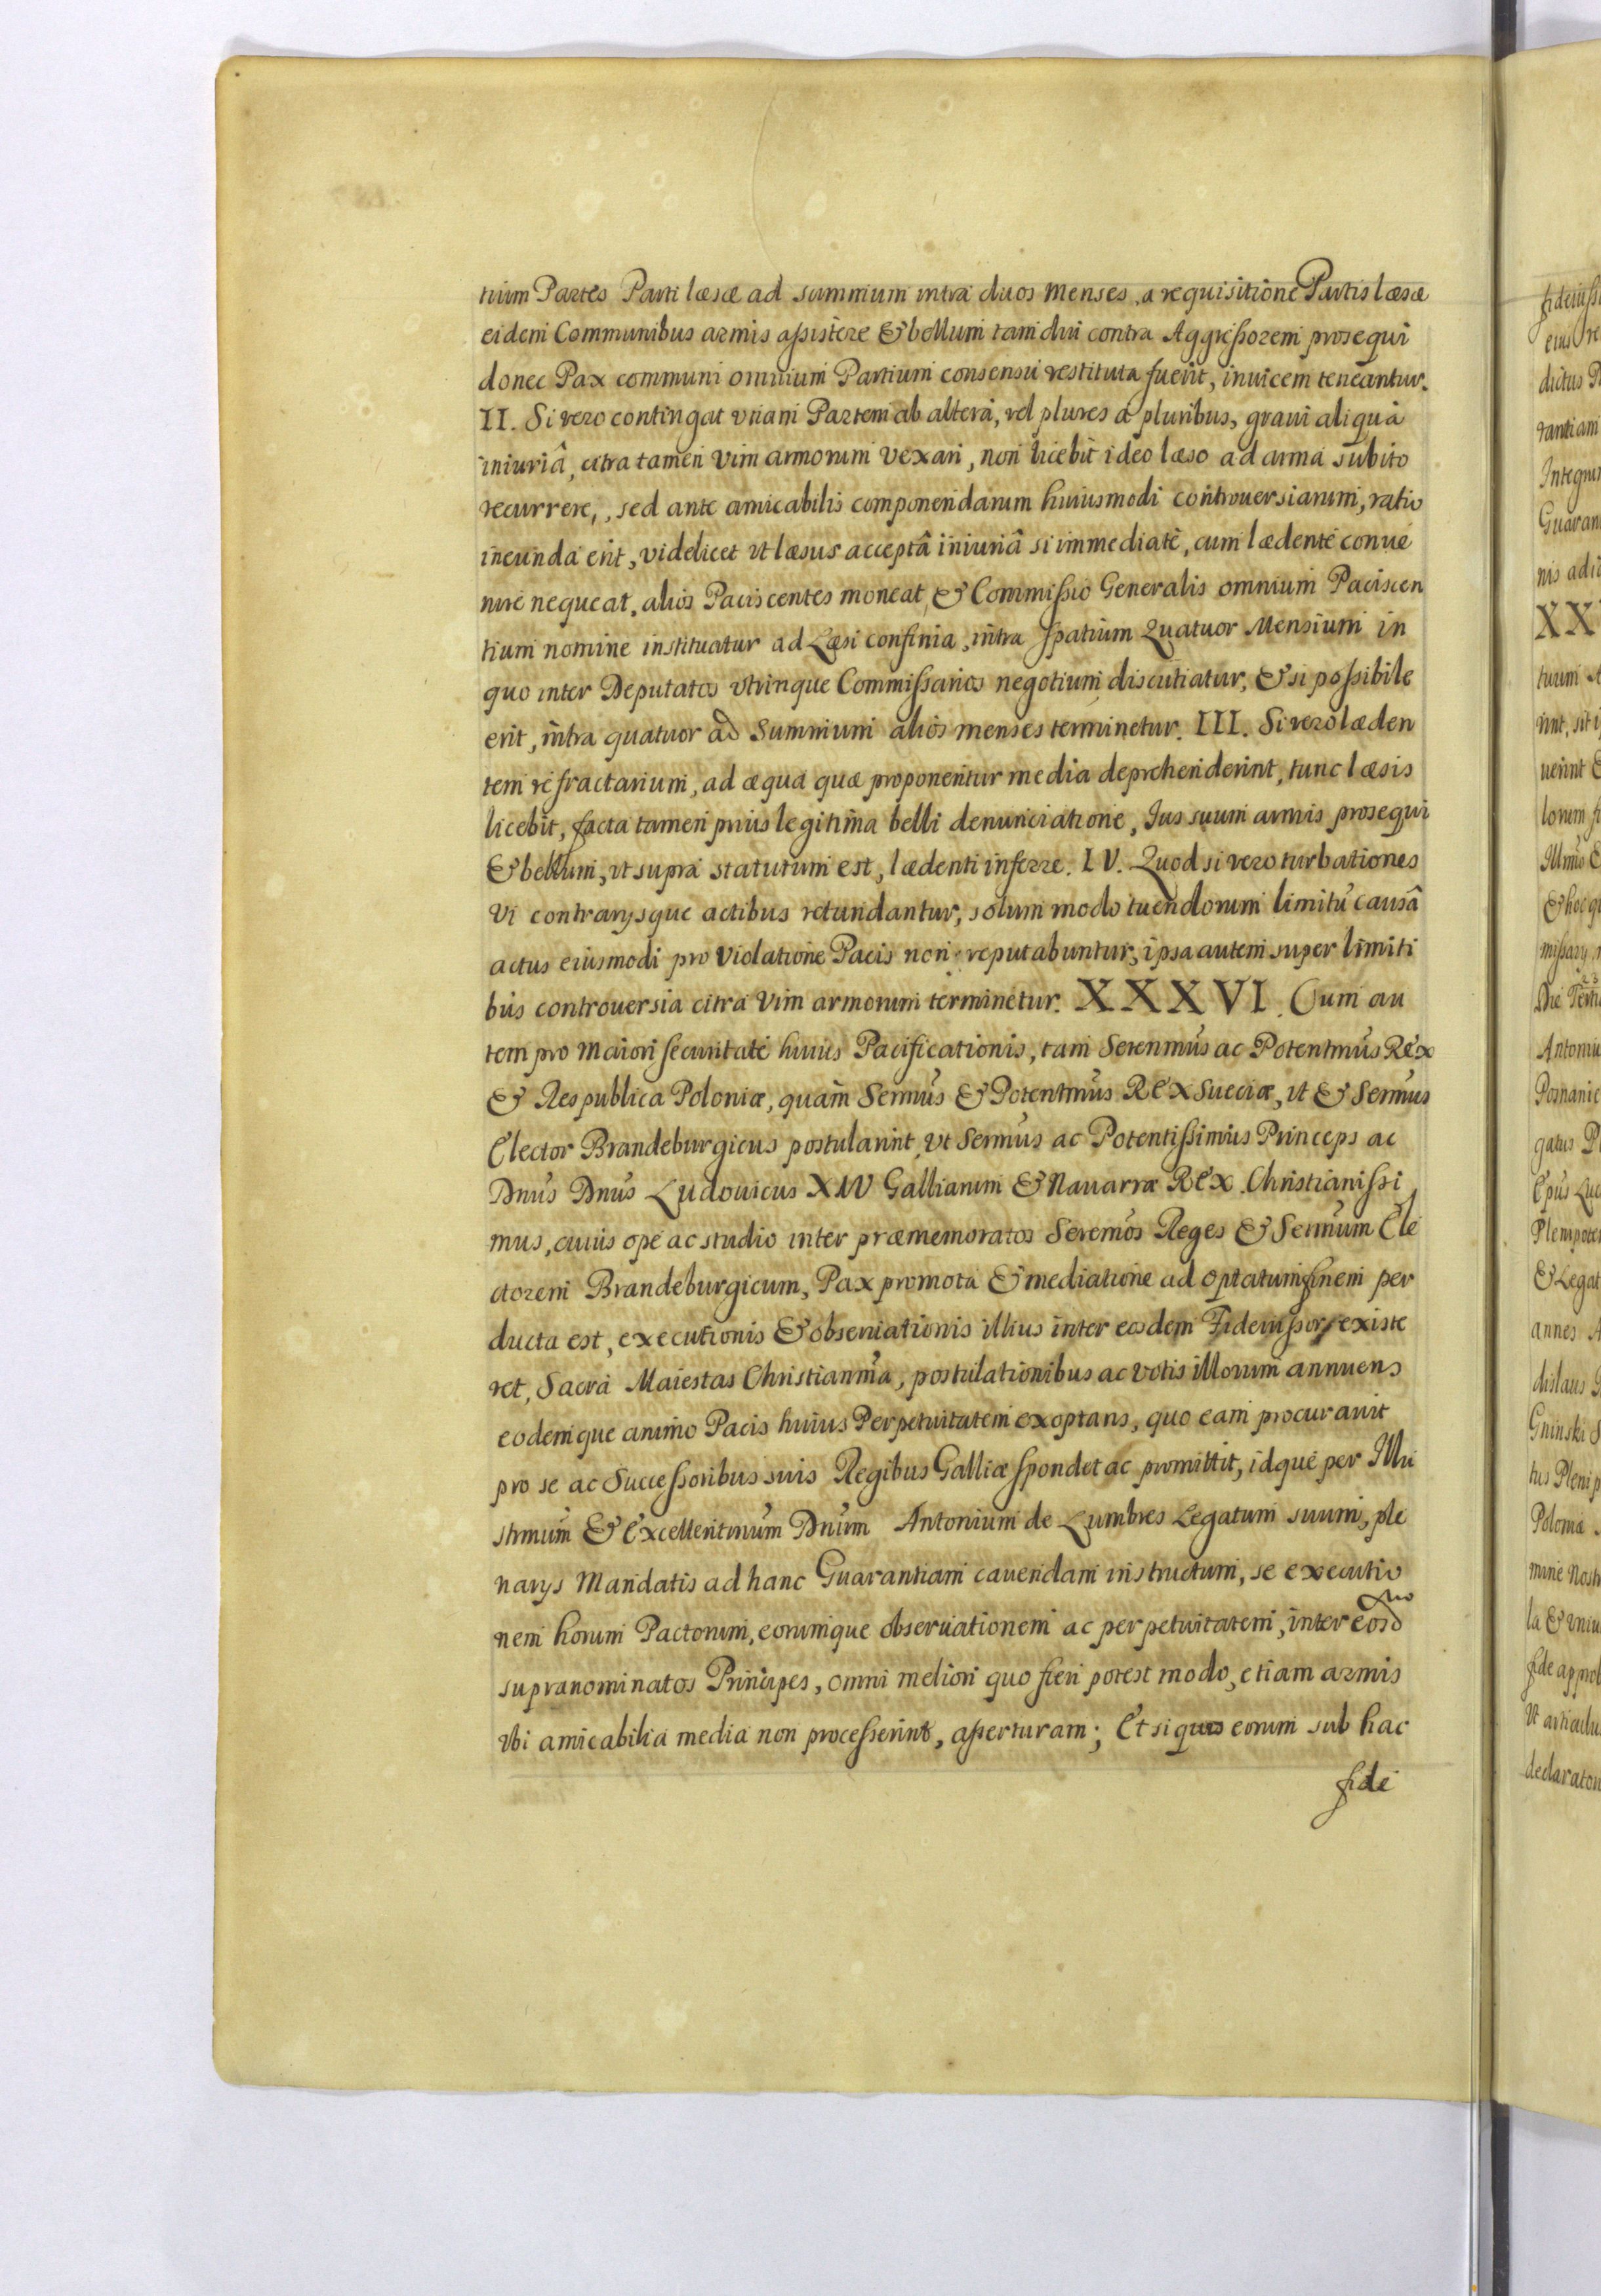 tium Partes Parti læsæ ad summum intra duos Menses, a requisitione Partis læsæ
eidem Communibus armis assistere & bellum tam diu contra Aggressorem prosequi
donec Pax communi omnium Partium consensu restituta fuerit, inuicem teneantur.
II. Si vero contingat vnam Partem ab altera, vel plures a pluribus, graui aliqua
iniuriâ, citra tamen vim armorum vexari, non licebit ideo læso ad arma subito
recurrere, sed ante amicabilis componendarum huiusmodi controuersiarum, ratio
ineunda erit, videlicet vt læsus acceptâ iniuriâ si immediate, cum lædente conue
nire nequeat, alios Paciscentes moneat, & Commissio Generalis omnium Paciscen
tium nomine instituatur ad Læsi confinia, intra spatium Quatuor Mensium in
quo inter Deputatos vtrinque Commissarios negotium discutiatur, & si possibile
erit, intra quatuor ad summum alios menses terminetur. III. Si vero læden
tem refractarium, ad æqua quæ proponentur media deprehenderint, tunc læsis
licebit, facta tamen prius legitima belli denunciatione, Ius suum armis prosequi
& bellum, vt supra statutum est, lædenti inferre. IV. Quod si vero turbationes
vi contrarysque actibus retundantur, solum modo tuendorum limitu causâ
actus eiusmodi pro violatione Pacis non reputabuntur, ipsa autem super limiti
bus controuersia citra vim armorum terminetur. XXXVI. Cum au
tem pro maiori securitate huius Pacificationis, tam Serenmus ac Potentmus Rex
& Respublica Poloniæ, quam Sermus & Potentmus Rex Sueciæ, vt & Sermus
Elector Brandeburgicus postularint, vt Sermus ac Potentissimus Princeps ac
Dnus Dnus Ludouicus XIV Galliarum & Nauarræ Rex Christianissi
mus, cuius ope ac studio inter præmemoratos Seremos Reges & Sermum Ele
ctorem Brandeburgicum, Pax promota & mediatione ad optatum finem per
ducta est, executionis & obseruationis illius inter eosdem Fideiussor existe
ret, Sacra Maiestas Christianma, postulationibus ac votis illorum annuens
eodemque animo Pacis huius Perpetuitatem exoptans, quo eam procurauit
pro se ac Successoribus suis Regibus Galliæ spondet ac promittit, idque per Illu
strmum & Excellentmum Dnum Antonium de Lumbres Legatum suum, ple
narys Mandatis ad hanc Guarantiam cauendam instructum, se executio
nem horum Pactorum, eorumque obseruationem ac perpetuitatem, inter eosd
supranominatos Principes, omni meliori quo fieri potest modo, etiam armis
vbi amicabilia media non processerint, asserturam; Et si quis eorum sub hac
fide